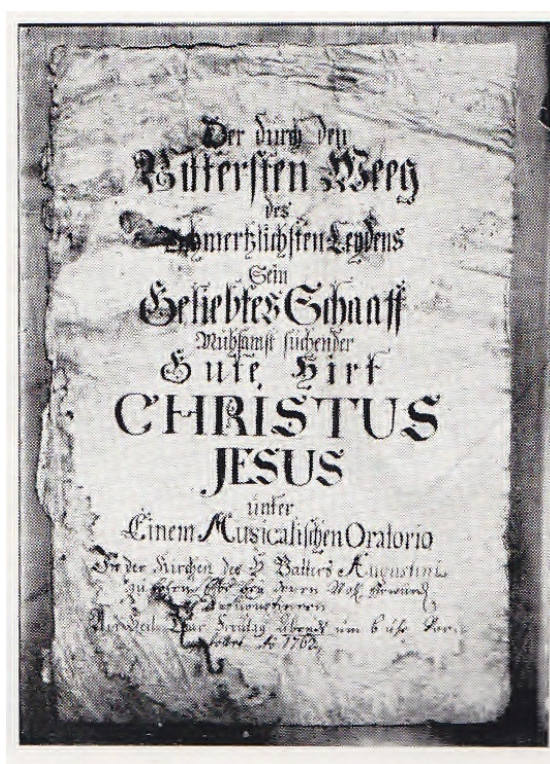 Der durch den
Bittersten Weeg
des
Schmertzlichsten Leydens
Sein
Geliebtes Schaaff
Mühsamst suchender
Gute Hirt
CHRISTUS
JESUS
unter
Einem Musicalischen Oratorio
In der Kirchen des H Vatters Augustini
zu
Freytag Abends um 6 Uhr
1762